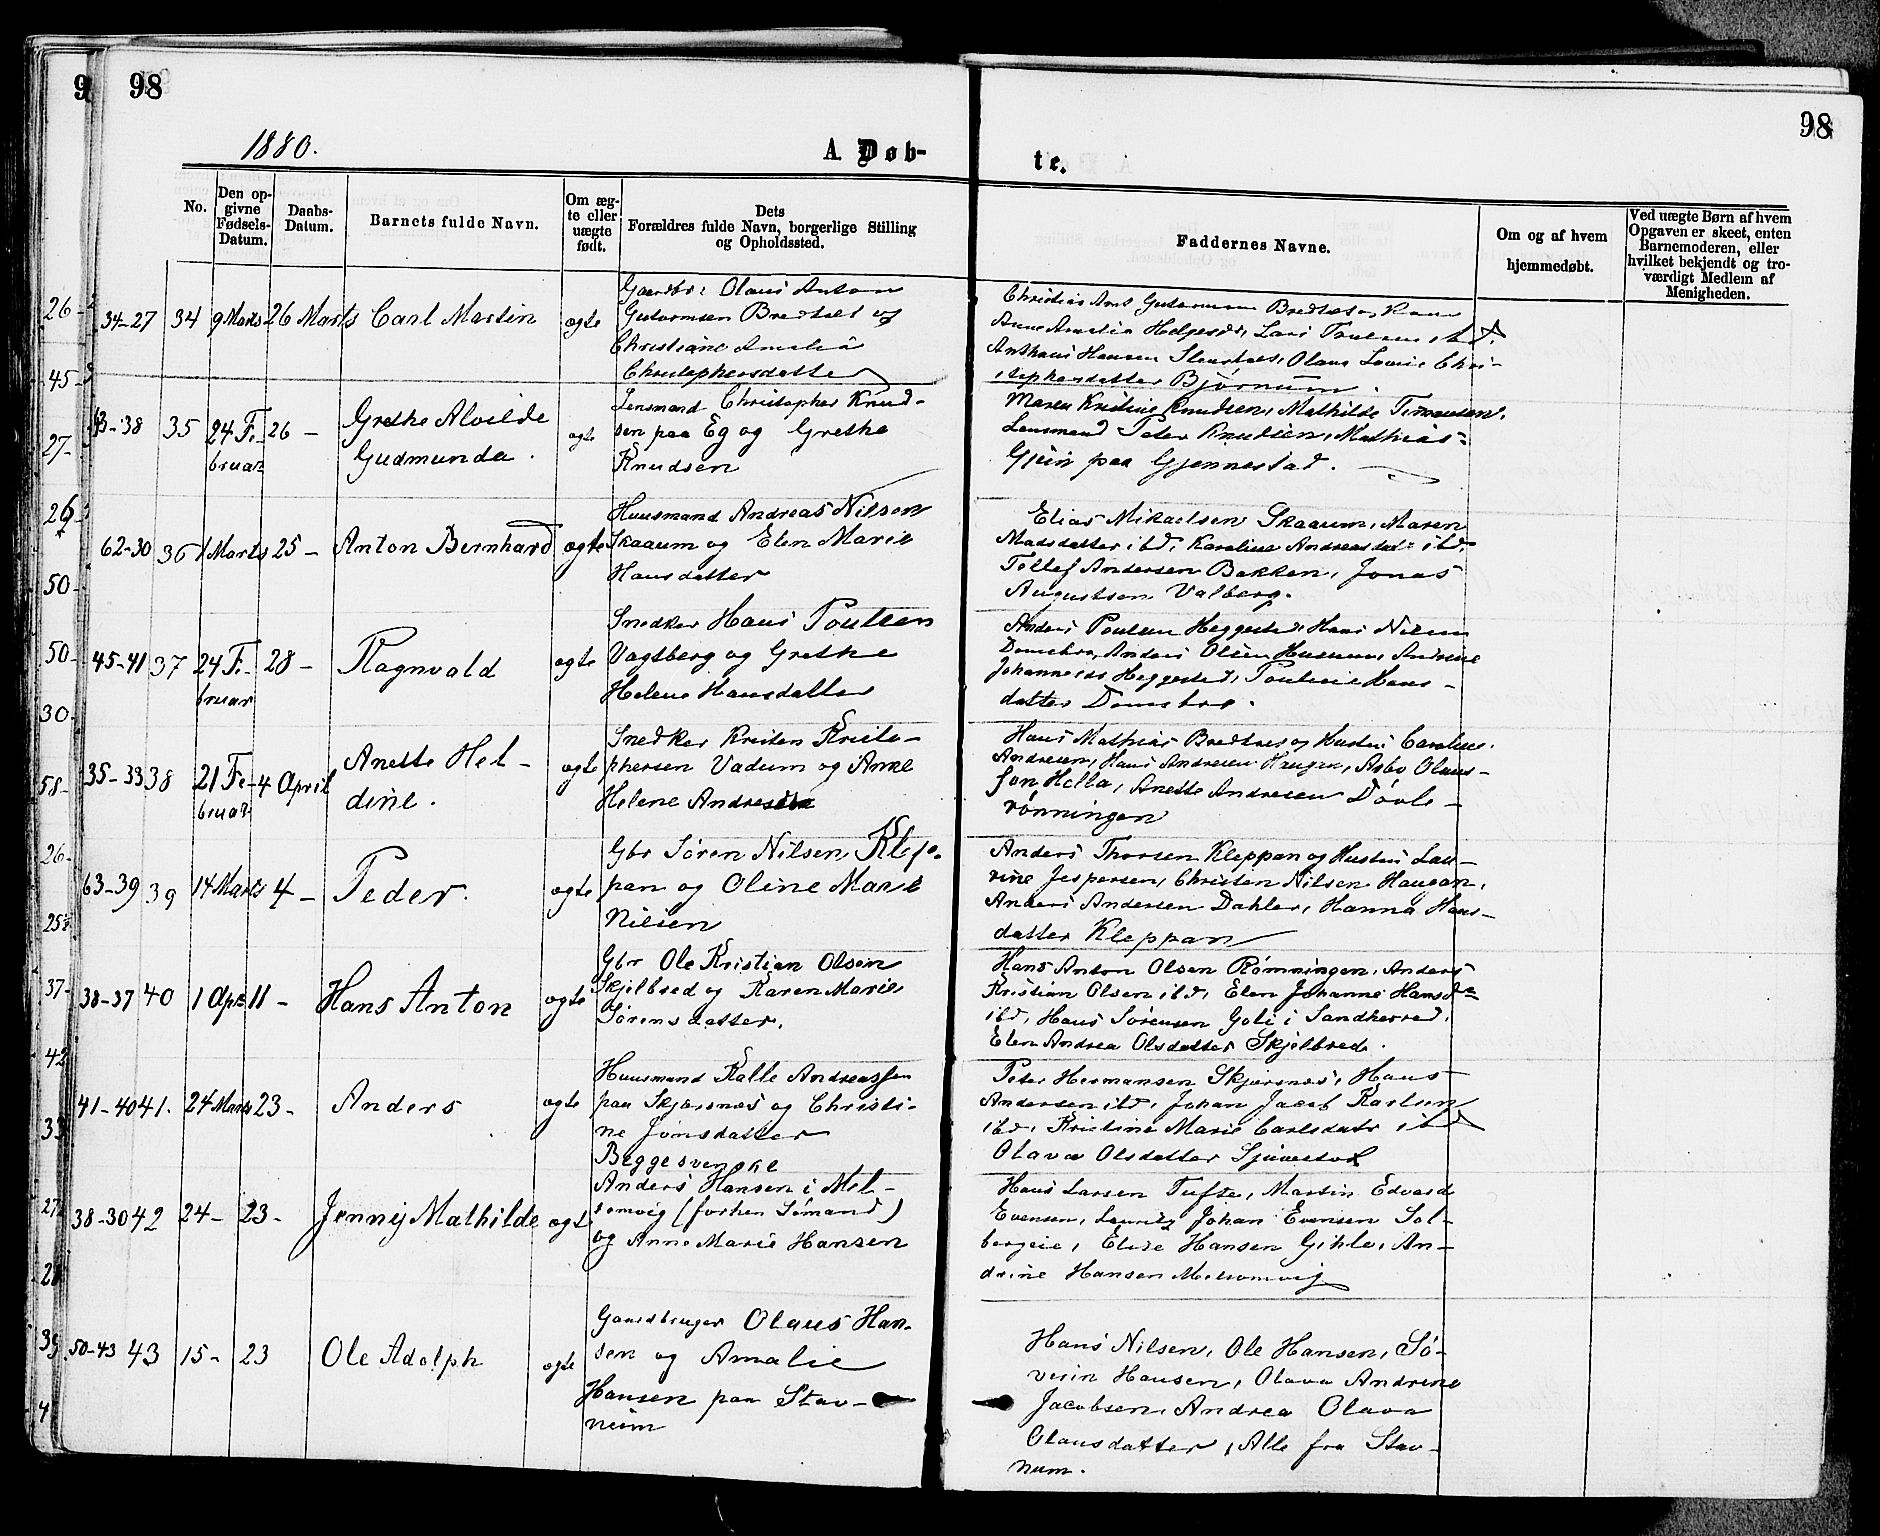 9
98
98
1880.
A. Døb-
te.
No.
Den op-
givne
Fødsels-
Datum.
Daabs-
Datum.
Barnets fulde Navn.
Om æg-
te eller
uægte
født.
Dets
Forældres fulde Navn, borgerlige Stilling
og Opholdssted.
Faddernes Navne.
Om og af hvem
hjemmedøbt.
Ved uægte Børn af hvem
Opgaven er skeet, enten
Barnemoderen, eller
hvilket bekjendt og tro-
værdigt Medlem af
Menigheden.
34-27 34 9 Marts 26 Marts Carl Martin ægte
Gaardbr: Olaus Anton
Gulormsen Bredtved og
Christiane Amalia
Christophersdatter
Anne Amalia Lars ibd.
Anthon Hansen Olava Lovise Chri-
stophersdatter Bjørnum.
35 24 Fe-
bruar 26 -
Grethe Alvilde
Gudmunda.
ægte
Lensmand Christopher Knud-
sen paa Eg og Grethe
Knudsen
Maren Kristine Knudsen, Mathilde
Lensmand Peter Knudsen, Mathias
Gjein paa Gjennestad.
62-30 36 1 Marts 25 - Anton Bernhard ægte
Huusmand Andreas Nilsen
Skaaum og Elen Marie
Hansdatter
Elias Mikaelsen Skaaum, Maren
Madsdatter ibd, Karoline Andreasdat: ibd,
Tollef Andersen Bakken, Jonas
Augustsen Valberg.
45-41 37 24 Fe-
bruar 28 - Ragnvald ægte
Snedker Hans Poulsen
Vagtberg og Grethe
Helene Hansdatter
Anders Poulsen Heggested, Hans Nilsen
Anders Olsen Husum, Andrine
Heggested, Pouline Hans-
datter
35-33 38 21 Fe-
bruar 4 April
Anette Hel-
dine.
ægte
Snedker Kristen Kristo-
phersen Vadum og Anne
Helene Andresen
Hans Mathias Bredtved og Hustru Caroline
Andresen, Hans Andresen Haugen, Asbo Olaus-
sen Hella, Anette Andresen Døvle-
rønningen
63-39 39 14 Marts 4 - Peder. ægte
Gbr Søren Nilsen Klep-
pan og Oline Marie
Nilsen
Anders Thorsen Kleppan og Hustru Lau-
rine Jespersen, Christen Nilsen Haugan,
Anders Andersen Dahler, Hanna Hans-
datter Kleppan
38-37 40 1 Apr 11 - Hans Anton ægte
Gbr Ole Kristian Olsen
Skjelbred og Karen Marie
Sørensdatter.
Hans Anton Olsen Rømningen, Anders
Kristian Olsen ibd, Elen Johanne Hansd
ibd, Hans Sørensen Goli i Sandherred,
Elen Andrea Olsdatter Skjelbred.
41-40 41. 24 Marts 23 - Anders ægte
Huusmand Kalle Andreassen
paa Skjærsnæs og Christi-
ne Jonsdatter
Begge svenske
Peter Hermansen Skjærsnæs, Hans
Andersen ibd, Johan Jacob Karlsen
ibd, Kristine Marie Carlsdatr ibd
Olava Olsdatter
38-30 42 24 - 23 - Jenny Mathilde ægte
Anders Hansen i Mel-
somvig (forhen Sømand)
og Anne Marie Hansen
Hans Larsen Tufte, Martin Edvard
Evensen, Lauritz Johan Evensen Sol-
bergeie, Elise Hansen Gihle, An-
drine Hansen Melsomvig
50-43 43 15 - 23 Ole Adolph ægte
Gaardbruger Olaus Han-
sen og Amalie
Hansen paa Stav-
neim
Hans Nilsen, Ole Hansen, Sø-
verin Hansen, Olava Andrine
Jacobsen, Andrea Olava
Olausdatter, Alle fra Stav-
num.